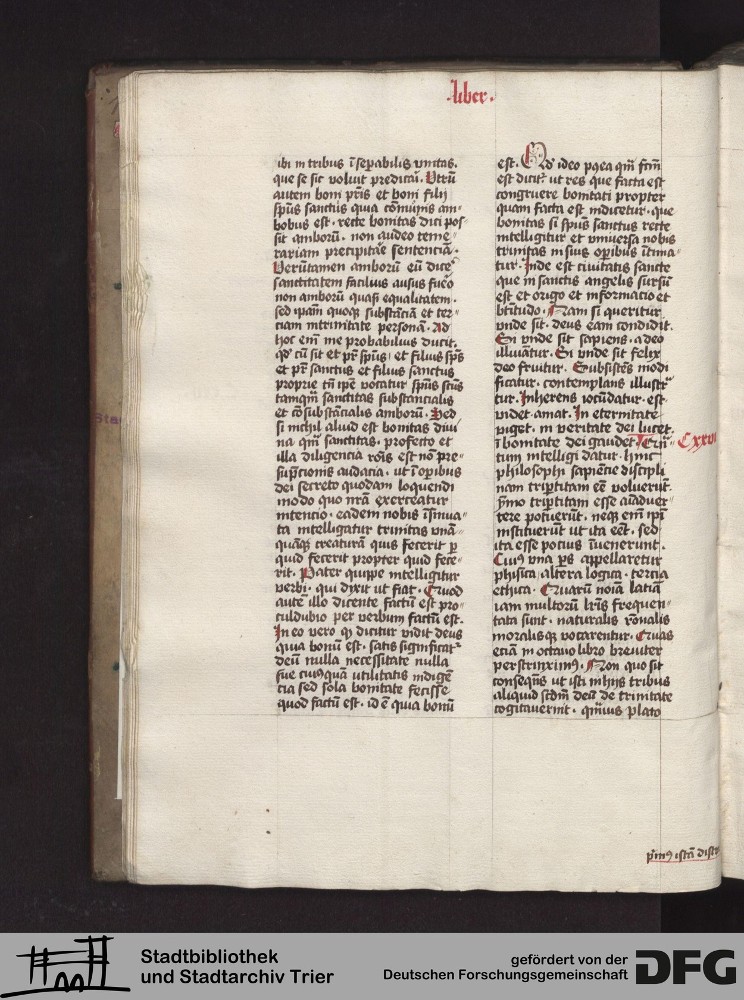 ·liber·
ibi in tribus īseꝑabilis vnitas.
que se sic voluit predicaī. Vtrū
autem boni pr̄is et boni filij
sp̄us sanctus quia cōmunis am-
bobus est. recte bonitas dici pos-
sit amborū. non audeo teme-
rariam precipitāe sentenciā.
Verūtamen amborū eū dicē
sanctitatem facilius ausus fuēo
non amborū quasi equalitatem.
sed ip̄am quoqꝫ substāciā et ter-
ciam in trinitate personā. Ad
hoc em̄ me probabilius ducit.
qd' cū sit et pr̄ sp̄us et filius sp̄s
et pr̄ sanctus et filius sanctus
proprie tn̄ ip̄e vocatur sp̄us sc̄us
tamqm̄ sanctitas substancialis
et cōsubstācialis amborū. Sed
si nichil aliud est bonitas diui
na qm̄ sanctitas. profecto et
illa diligencia rōis est nō pre-
sūp̄cionis audacia. ut ī oꝑibus
dei secreto quodam loquendi
modo quo nr̄a exerceatur
intencio. eadem nobis īsinua-
ta intelligatur trinitas vnā-
quāqꝫ creaturā quis fecerit ꝑ
quid fecerit propter quid fece-
rit. Pater quippe intelligitur
verbi. qui dixit ut fiat. Quod
autē illo dicente factū est pro-
culdubio per verbum factū est.
In eo vero qꝫ dicitur vidit deus
quia bonū est. satis significat'
deū nulla necessitate nulla
sue cuiꝰquā vtilitatis indigē
cia sed sola bonitate fecisse
quod factū est. id ē quia bonū
est. Qd' ideo pꝰea qm̄ fc̄m
est dicit' ut res que facta est
congruere bonitati propter
quam facta est indicetur. que
bonitas si sp̄us sanctus recte
intelligitur et vniuersa nobis
trinitas in suis oꝑibus ītima-
tur. Inde est ciuitatis sancte
que in sanctis angelis sursū
est et origo et informacio et
btītudo. Nam si queritur
vnde sit. deus eam condidit.
Si vnde sit sapiens. a deo
illuīatur. Si vnde sit felix
deo fruitur. Subsistens modi
ficatur. contemplans illustr
tur. Inherens iocūdatur. est
videt. amat. In eternitate
viget. in veritate dei lucet.
ī bonitate dei gaudet. Qm̄- Cxxvi
tum intelligi datur. hinc
philosophi sapiēcie discipli
nam triꝑtitam eē voluerūt.
ymo triꝑtitam esse aīaduer-
tere potuerūt. neqꝫ em̄ ip̄i
instituerūt ut ita eēt. sed
ita esse potius īuenerunt.
Cuiꝰ vna ꝑs appellaretur
phisica altera logica. tercia
ethica. Quarū noīa latīa
iam multorū lr̄is frequen-
tata sunt. naturalis rōnalis
moralisqꝫ vocarentur. Quas
eciā in octauo libro breuiter
perstrinximꝰ. Non quo sit
conseqn̄s ut isti in hijs tribus
aliquid scdm̄ deū de trinitate
cogitauerint. qm̄uis plato
p̄imꝰ istā dist
Stadtbibliothek
und Stadtarchiv Trier
gefördert von der
Deutschen Forschungsgemeinschaft
DFG